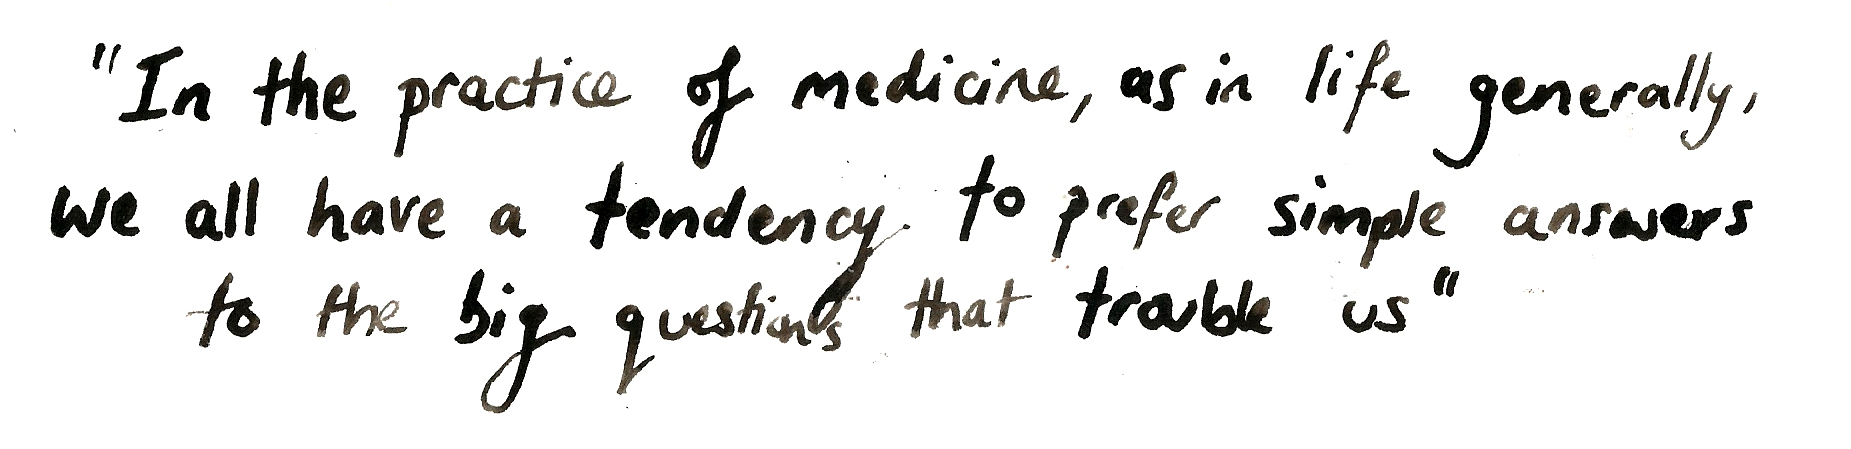 "In the practice of medicine, as in life generally,
we all have a tendency to prefer simple answers
to the big questions that trouble us"